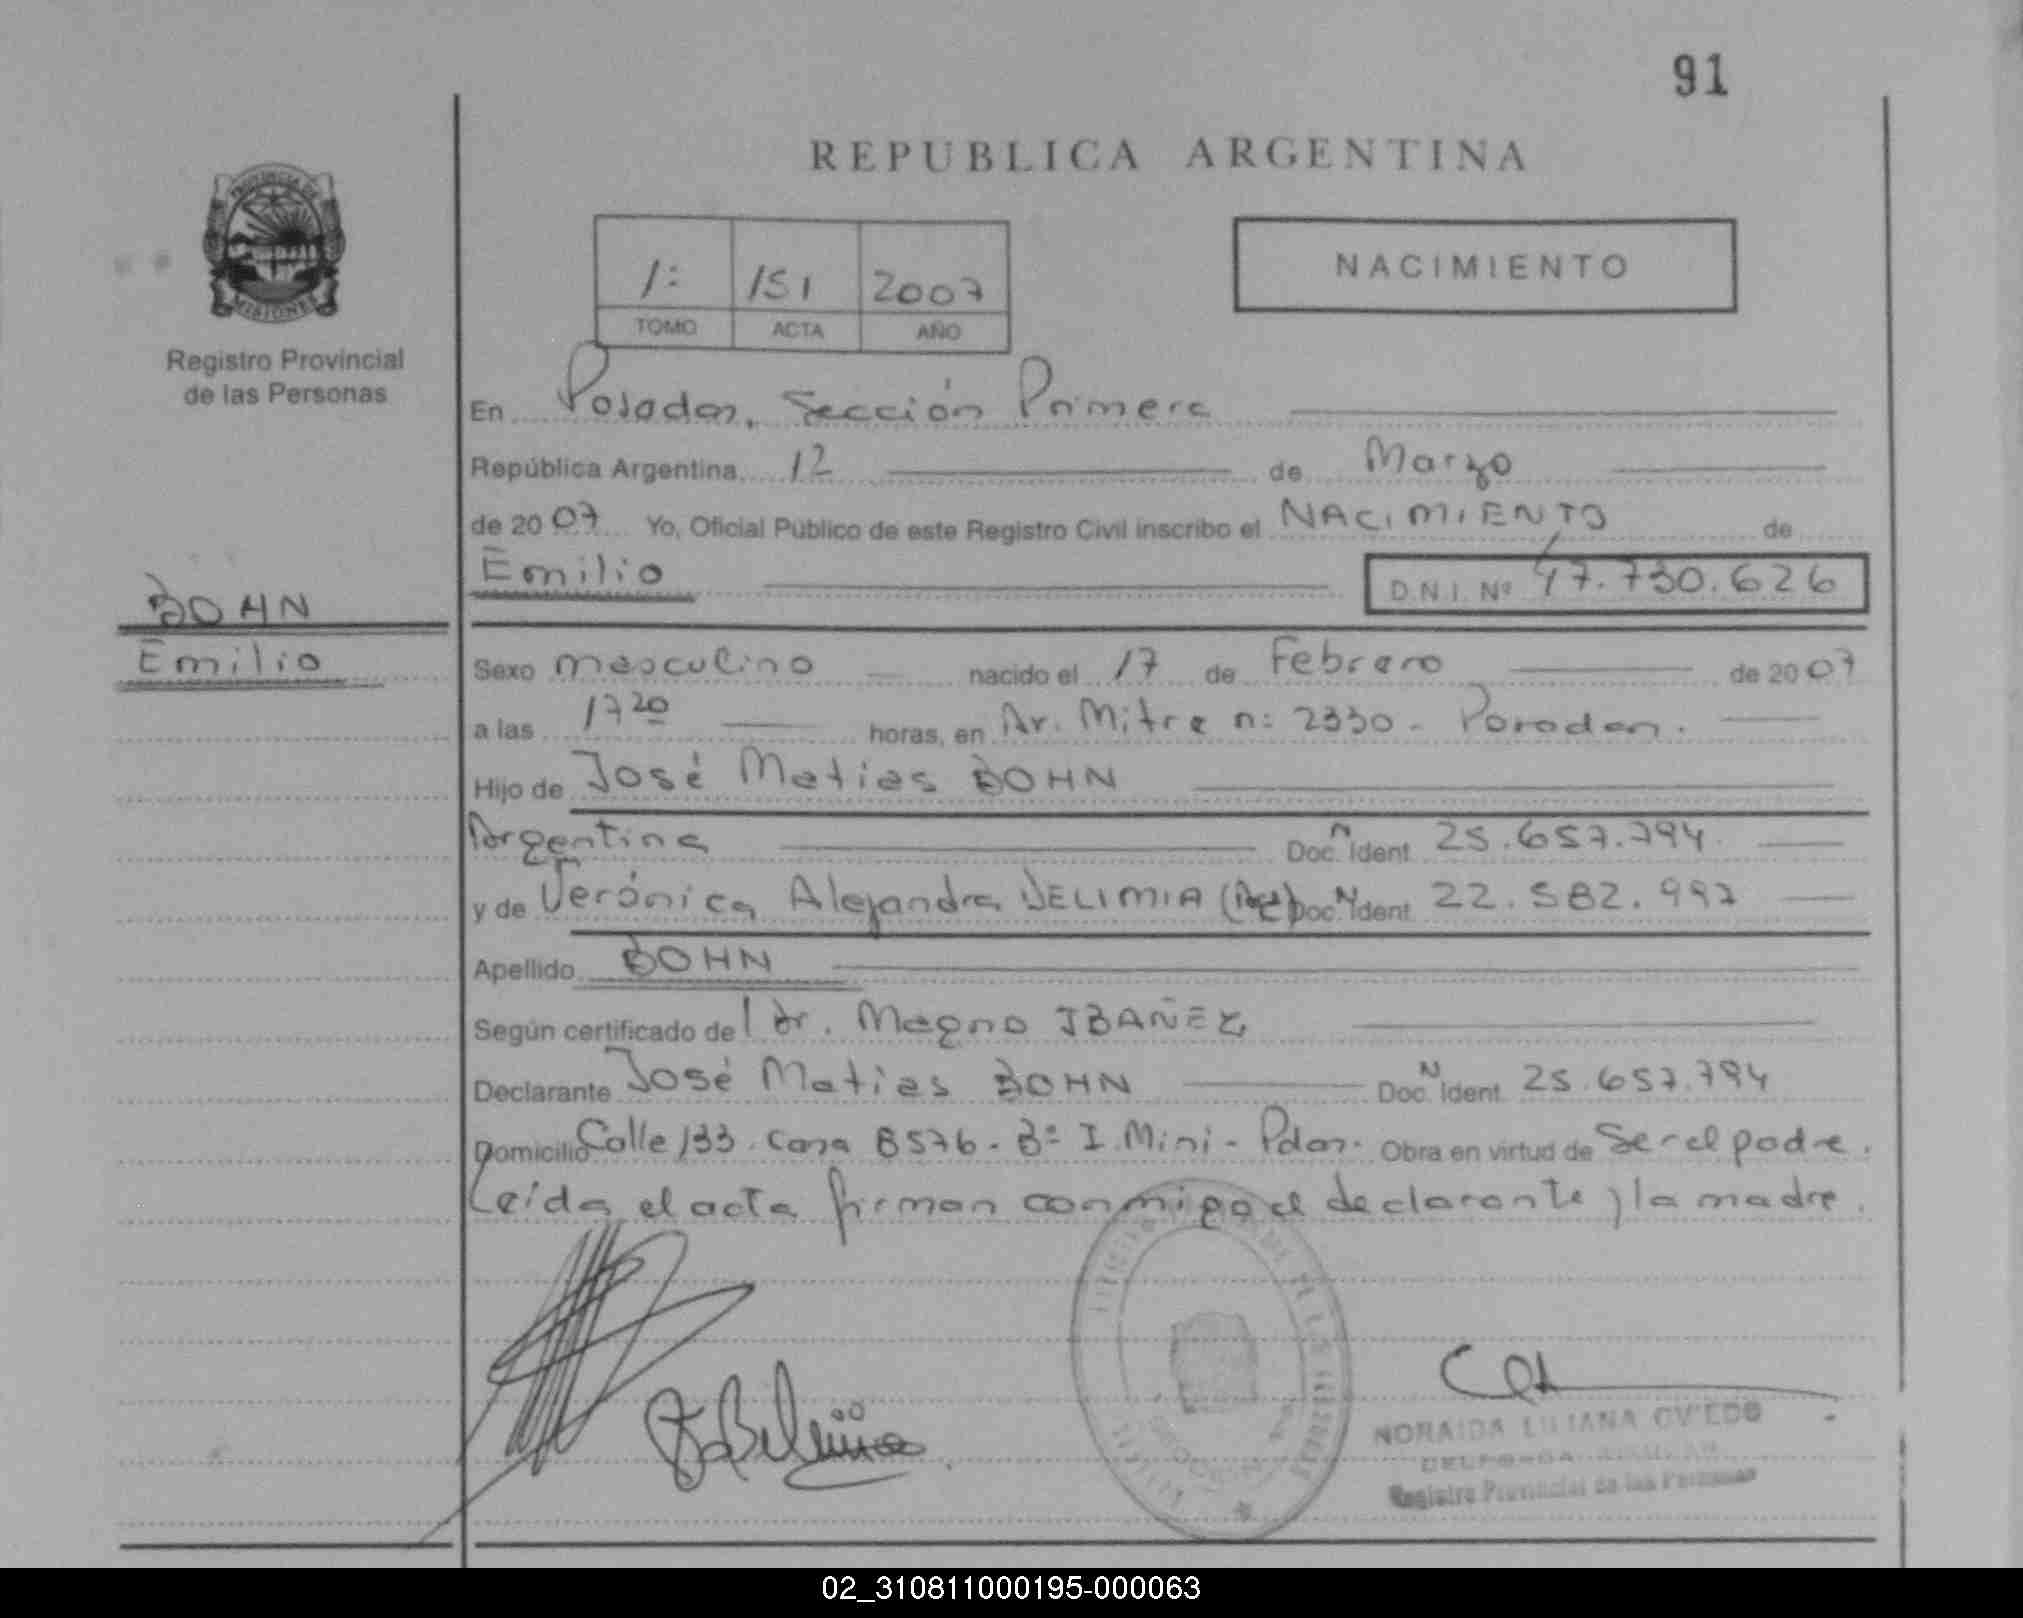 91
REPUBLICA ARGENTINA
PROVINCIA DE
MISIONES
Registro Provincial
de las Personas
1: 151 2007
TOMO ACTA AÑO
NACIMIENTO
En Posadas, Sección Primera
República Argentina 12 de Marzo
de 2007 Yo, Oficial Público de este Registro Civil inscribo el NACIMIENTO de
Emilio D.N.I. Nº 47.730.626
BOHN
Emilio
Sexo masculino nacido el 17 de Febrero de 2007
a las 17 20 horas, en Av. Mitre n: 2330 - Posadas.
Hijo de José Matias BOHN
Argentina Doc. Ident. 25.657.794
y de Verónica Alejandra Doc. Ident. 22.582.997
Apellido BOHN
Según certificado del Dr. Magno IBAÑEZ
Declarante José Matias BOHN Doc. Ident. 25.657.794
Domicilio Calle 133 casa 8576 - Bº I. Mini - Pdas. Obra en virtud de ser el padre.
Leída el acta firman conmigo el declarante y la madre.
NORAIDA LILIANA OVIEDO
Registro Provincial de las Personas
02_310811000195-000063